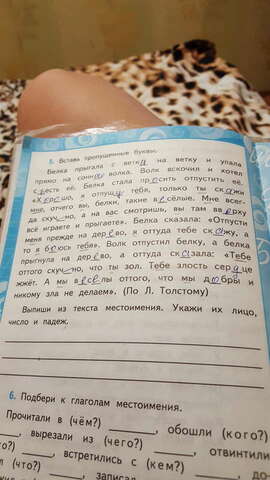 5. Вставь пропущенные буквы.
Белка прыгала с ветки на ветку и упала
прямо на сонного волка. Волк вскочил и хотел
съесть её. Белка стала просить отпустить её.
«Хорошо, я отпущу тебя, только ты скажи
мне, отчего вы, белки, такие весёлые. Мне всег-
да скучно, а на вас смотришь, вы там вверху
всё играете и прыгаете». Белка сказала: «Отпусти
меня прежде на дерево, я оттуда тебе скажу, а
то я боюсь тебя». Волк отпустил белку, а белка
прыгнула на дерево, а оттуда сказала: «Тебе
оттого скучно, что ты зол. Тебе злость сердце
жжёт. А мы веселы оттого, что мы добры и
никому зла не делаем». (По Л. Толстому)
Выпиши из текста местоимения. Укажи их лицо,
число и падеж.
6. Подбери к глаголам местоимения.
Прочитали в (чём?) , обошли (кого?)
, вырезали из (чего?) , отвинтили
го?) , встретились с (кем?) , до
л (что?) , записал